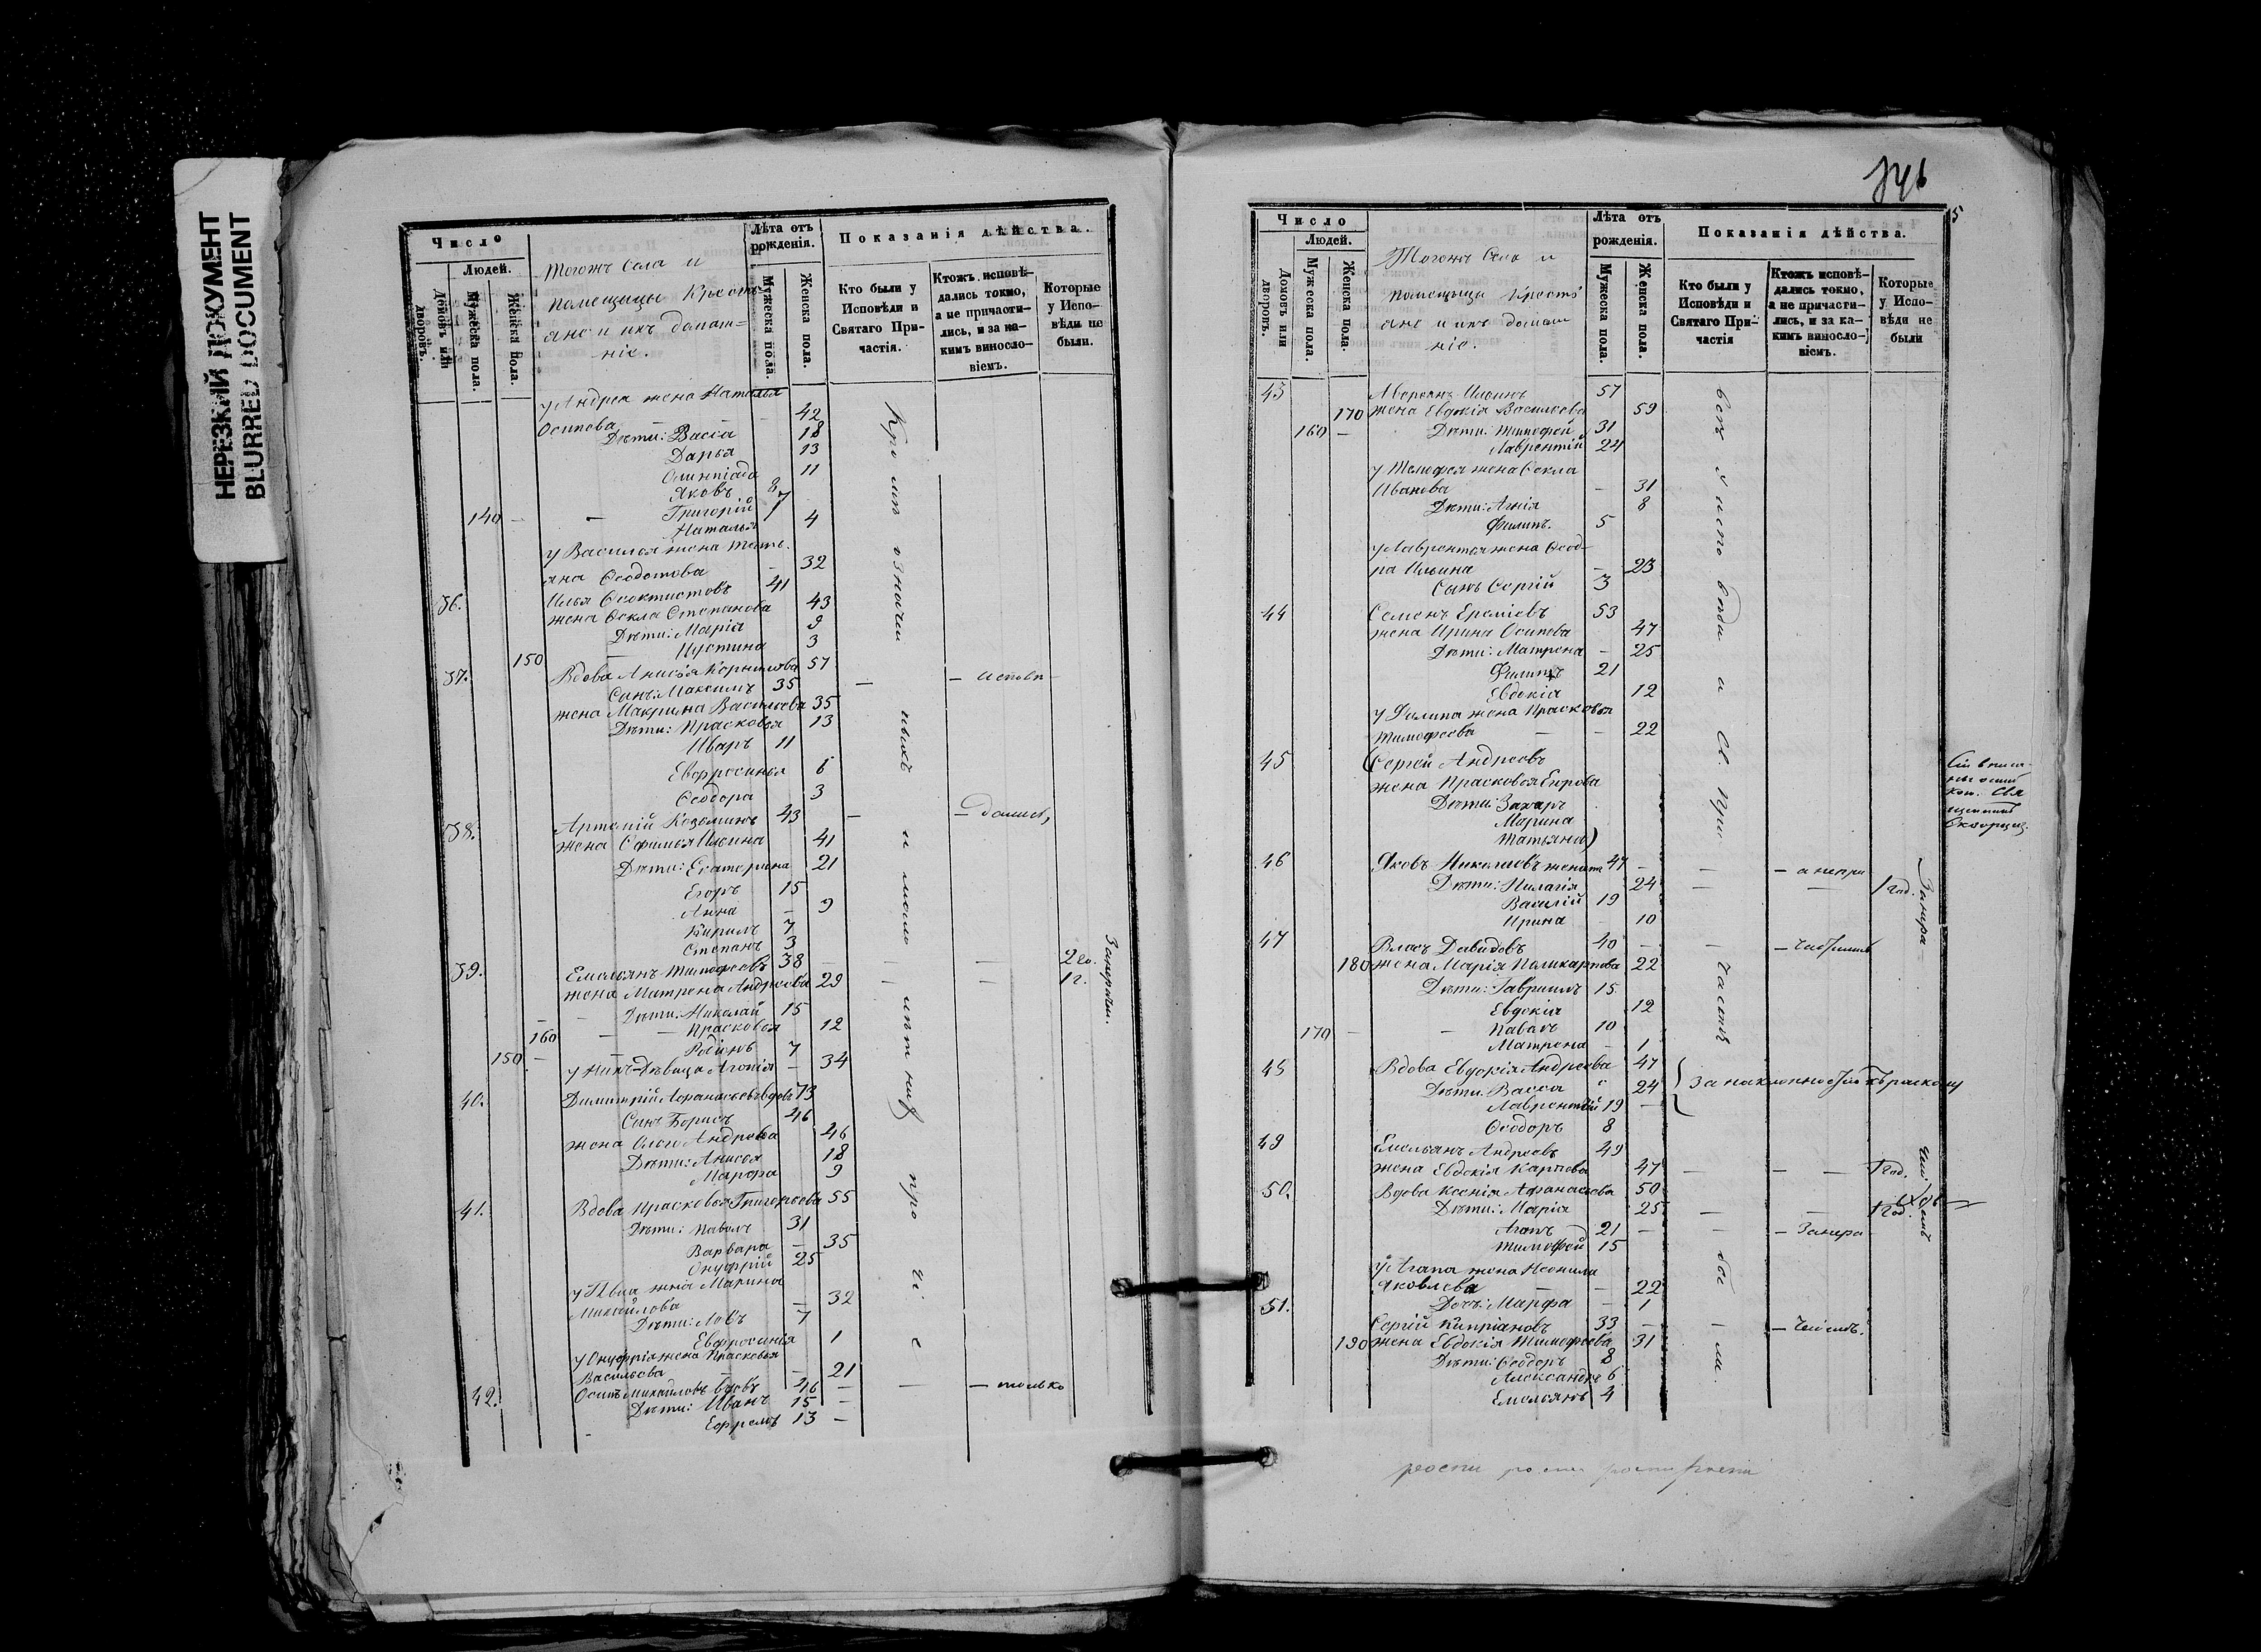 НЕРЕЗКИЙ ДОКУМЕНТ
BLURRED DOCUMENT
Число
Людей.
Домовъ или дворовъ.
Мужеска пола.
Женска пола.
Тогожъ Села и
помещицы Кресть
яне и ихъ домаш=
ніе.
Лѣта отъ рожденія.
Мужеска пола.
Женска пола.
Показанія дѣйства.
Кто были у Исповѣди и Святаго Причастія.
Ктожъ исповѣдались токмо, а не причастились, и за какимъ винословіемъ.
Которые у Исповѣди не были.
у Андрея жена Наталья
Осипова — 42
Дѣти: Васса 18
Дарья 13
Олимпіада 11
Яковъ 8
140 — Григорій 7
Наталья 4
у Василья жена Тать
яна Ѳеодотова — 32
36. Илья Ѳеоктистовъ 41
жена Ѳекла Степанова 43
Дѣти: Марія 9
150 Иустина 3
37. Вдова Анисья Корнилова 57
Сынъ: Максимъ 35 — — исповѣ
жена Макрина Васильева 35
Дѣти: Прасковья 13
Иваръ 11
Евфросинья 6
Ѳеодора 3
38. Артемій Козьминъ 43 — — дались,
жена Ефимья Ильина 41
Дѣти: Екатерина 21
Егоръ 15
Анна — 9
Кирилъ 7
Степанъ 3
39. Емельянъ Тимофеевъ 38 — — — 2 го.
жена Матрена Андреева 29 — — 1 г.
Дѣти: Николай 15
160 — Прасковья 12
150 — Родіонъ 7
у нихъ Дѣвица Агапія — 34
40. Димитрій Афанасьевъ вдовъ 73
Сынъ Борисъ 46
жена Ольга Андреева 46
Дѣти: Анисья 18
Марфа 9
41. Вдова Прасковья Григорьева 55
Дѣти: Павелъ 31
Варвара — 35
Онуфрій 25
у Павла жена Марина
Михайлова — 32
Дѣти: Левъ 7
Евфросинія 1
у Онуфрія жена Прасковья
Васильева — 21
42. Осипъ Михайловъ вдовъ 46 — — — только
Дѣти: Иванъ 15 —
Ефремъ 13 —
Кромѣ означен ныхъ и мало лѣтнихъ про чі е
5
Число
Людей.
Домовъ или дворовъ.
Мужеска пола.
Женска пола.
Тогожъ Села и
помещицы Кресть
яне и ихъ домаш
ніе.
Лѣта отъ рожденія.
Мужеска пола.
Женска пола.
Показанія дѣйства.
Кто были у Исповѣди и Святаго Причастія
Ктожъ исповѣдались токмо, а не причастились, и за какимъ винословіемъ.
Которые у Исповѣди не были
43 Аверьянъ Ильинъ 57
170 жена Евдокія Васильева 59
160 — Дѣти: Тимофей 31
Лаврентій 24
у Тимофея жена Ѳекла
Иванова — 31
Дѣти: Агнія 8
Филипъ. 5
у Лаврентья жена Ѳеодо
ра Ильина — 23
Сынъ Сергій 3
44 Семенъ Еремѣевъ 53
жена Ирина Осипова 47
Дѣти: Матрена — 25
Филипъ 21
Евдокія 12
у Филипа жена Прасковья
Тимофеева — — 22
45 (Сергей Андреевъ
жена Прасковья
Дѣти: Захаръ
Марина
Татьяна)
46 Яковъ 47 — — — а непри
Дѣти: Пилагія 24 — — 1 год.
Василій 19
Ирина — 10
47 Власъ Давидовъ 40 — — —
180 жена Марія Поликарпова 22
Дѣти: Гавриилъ 15
Евдокія 12
170 — — Павелъ 10
Матрена — 1
48 Вдова Евдокія Андреева 47
Дѣти: Васса 24 За наклонностію къ расколу
Лаврентій 19 —
Ѳеодоръ 8
49 Емельянъ Андреевъ 49
жена Евдокія Карпова 47 — — — 1 год.
50. Вдова Ксенія Афанасьева 50
Дѣти: Марія 25 — — 1 год.
Агапъ 21 — — —
Тимофей 15
у Агапа жена Неонила
Яковлева — — 22
Дочь: Марфа — 1
51. Сергій Кипріановъ 33 — — —
190 жена Евдокія Тимофеева 31
Дѣти: Ѳеодоръ 8
Александръ 6
Емельянъ 4